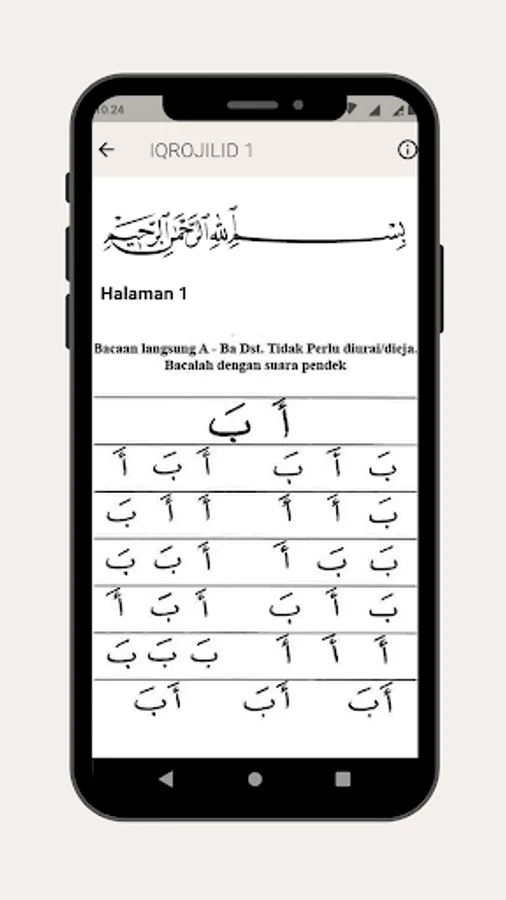 10.24
IQROJILID 1
بِسْمِ اللهِ الرَّحْمٰنِ الرَّحِيْمِ
Halaman 1
Bacaan langsung A - Ba Dst. Tidak Perlu diurai/dieja.
Bacalah dengan suara pendek
أَ بَ
بَ أَ بَ أَ بَ أَ
بَ أَ أَ أَ أَ بَ
بَ بَ أَ أَ بَ بَ
بَ أَ بَ أَ بَ أَ
أَ أَ أَ بَ بَ بَ
أَبَ أَبَ أَبَ